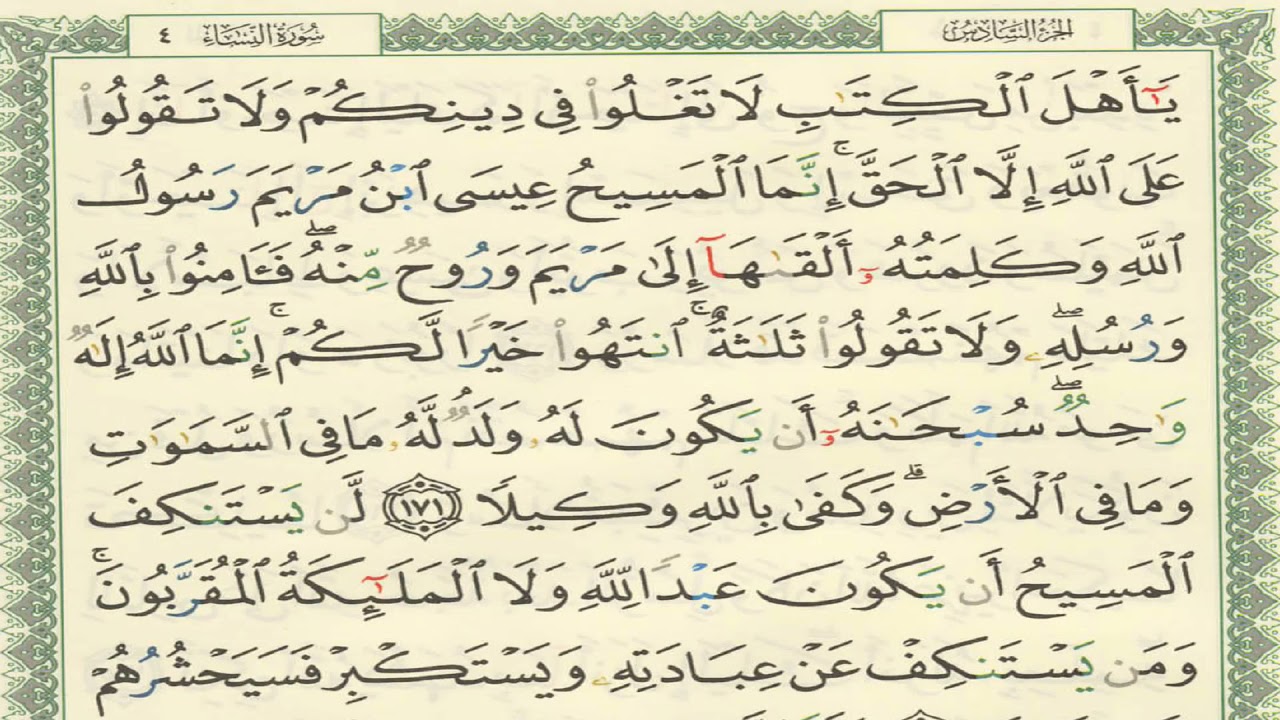 الجزء السادس سورة النساء ٤
يَٰٓأَهْلَ ٱلْكِتَٰبِ لَا تَغْلُوا۟ فِى دِينِكُمْ وَلَا تَقُولُوا۟
عَلَى ٱللَّهِ إِلَّا ٱلْحَقَّ ۚ إِنَّمَا ٱلْمَسِيحُ عِيسَى ٱبْنُ مَرْيَمَ رَسُولُ
ٱللَّهِ وَكَلِمَتُهُۥٓ أَلْقَىٰهَآ إِلَىٰ مَرْيَمَ وَرُوحٌ مِّنْهُ ۖ فَـَٔامِنُوا۟ بِٱللَّهِ
وَرُسُلِهِۦ ۖ وَلَا تَقُولُوا۟ ثَلَٰثَةٌ ۚ ٱنتَهُوا۟ خَيْرًا لَّكُمْ ۚ إِنَّمَا ٱللَّهُ إِلَٰهٌ
وَٰحِدٌ ۖ سُبْحَٰنَهُۥٓ أَن يَكُونَ لَهُۥ وَلَدٌ ۘ لَّهُۥ مَا فِى ٱلسَّمَٰوَٰتِ
وَمَا فِى ٱلْأَرْضِ ۗ وَكَفَىٰ بِٱللَّهِ وَكِيلًا ١٧١ لَّن يَسْتَنكِفَ
ٱلْمَسِيحُ أَن يَكُونَ عَبْدًا لِّلَّهِ وَلَا ٱلْمَلَٰٓئِكَةُ ٱلْمُقَرَّبُونَ ۚ
وَمَن يَسْتَنكِفْ عَنْ عِبَادَتِهِۦ وَيَسْتَكْبِرْ فَسَيَحْشُرُهُمْ